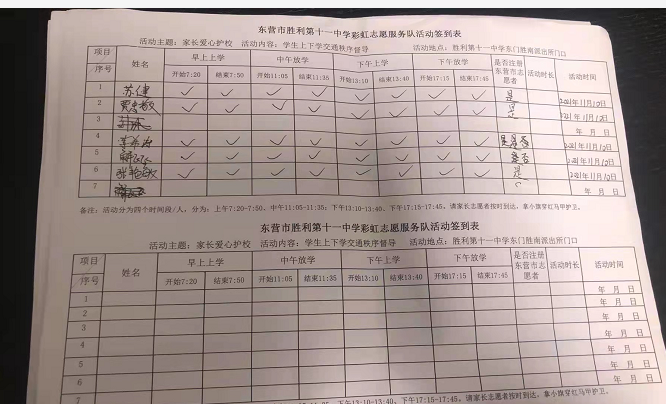 东营市胜利第十一中学彩虹志愿服务队活动签到表
活动主题：家长爱心护校 活动内容：学生上下学交通秩序督导 活动地点：胜利第十一中学东门胜南派出所门口
项目 姓名 早上上学 中午放学 下午上学 下午放学 是否注册东营市志愿者 活动时长 活动时间
序号 开始7:20 结束7:50 开始11:05 结束11:35 开始13:10 结束13:40 开始17:15 结束17:45
1 苏健 ✓ ✓ ✓ ✓ ✓ ✓ ✓ ✓ 是 2021年11月10日
2 ✓ ✓ ✓ ✓ ✓ ✓ ✓ ✓ 是 2021年11月10日
3 年 月 日
4 ✓ ✓ ✓ ✓ ✓ ✓ ✓ ✓ 2021年11月10日
5 ✓ ✓ ✓ ✓ ✓ ✓ ✓ ✓ 2021年11月10日
6 ✓ ✓ ✓ ✓ ✓ ✓ ✓ ✓ 是 2021年11月10日
7 年 月 日
备注：活动分为四个时间段/人，分为：上午7:20-7:50，中午11:05-11:35；下午13:10-13:40，下午17:15-17:45。请家长志愿者按时到达，拿小旗穿红马甲护卫。
东营市胜利第十一中学彩虹志愿服务队活动签到表
活动主题：家长爱心护校 活动内容：学生上下学交通秩序督导 活动地点：胜利第十一中学东门胜南派出所门口
项目 姓名 早上上学 中午放学 下午上学 下午放学 是否注册东营市志愿者 活动时长 活动时间
序号 开始7:20 结束7:50 开始11:05 结束11:35 开始13:10 结束13:40 开始17:15 结束17:45
1 年 月 日
2 年 月 日
3 年 月 日
4 年 月 日
5 年 月 日
6 年 月 日
7
下午13:10-13:40，下午17:15-17:45。请家长志愿者按时到达，拿小旗穿红马甲护卫。